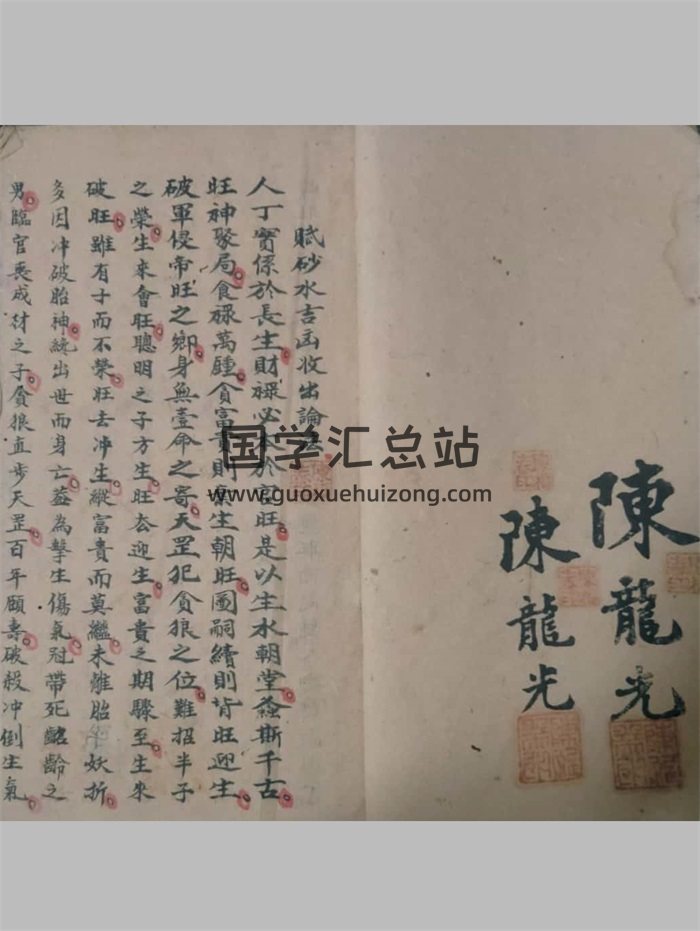 陳龍光
陳龍光
賦砂水吉凶收出論
人丁實係於長生財祿必於旺是以生水朝堂螽斯千古
旺神聚局食祿萬鍾貪富貴則棄生朝旺圖嗣續則背旺迎生
破軍侵帝旺之鄉身無壹命之寄天罡犯貪狼之位難招半子
之榮生來會旺聰明之子方生旺去迎生富貴之期驟至生來
破旺雖有子而不榮旺去冲生縱富貴而莫繼未離胎而妖折
多因冲破胎神纔出世而身亡葢為擊生傷氣冠帶死齠齡之
男臨官丧成材之子貪狼直步天罡百年願夀破殺冲倒生氣
国学汇总站
www.guoxuehuizong.com